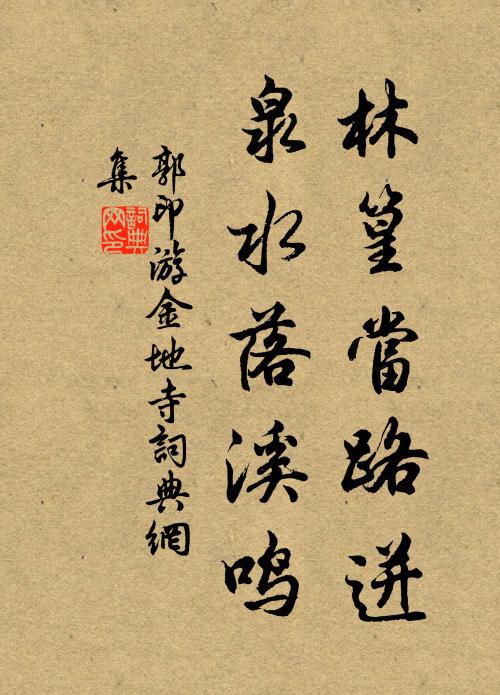 林篁當路迸
泉水落溪鳴
郭印游金地寺詞典網
集
詞典網印